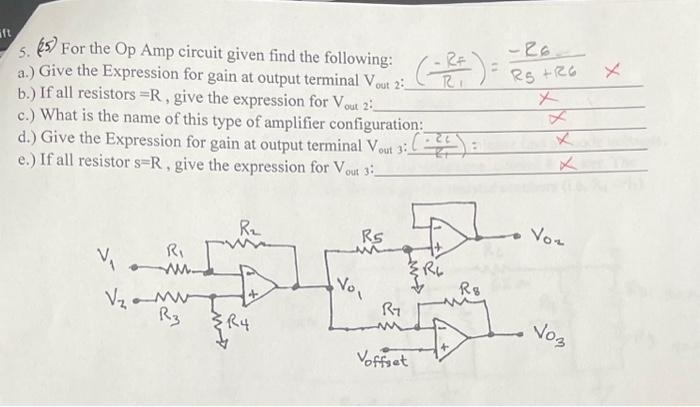 ift
5. (25) For the Op Amp circuit given find the following:
a.) Give the Expression for gain at output terminal Vout 2: (-RF/R1) = -R6/R5+R6 X
b.) If all resistors =R , give the expression for Vout 2: X
c.) What is the name of this type of amplifier configuration: X
d.) Give the Expression for gain at output terminal Vout 3: X
e.) If all resistor s=R , give the expression for Vout 3: X
R2
R5
V1 R1
- + - +
Vo2
R6
V2 R3
R4
Vo1
R7
R8
- +
Vo3
Voffset